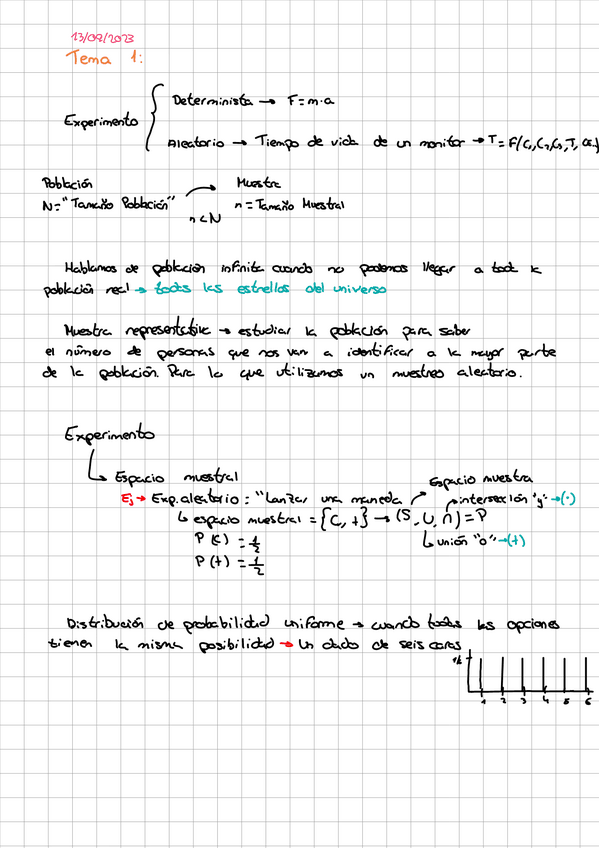 13/09/2023
Tema 1:
Experimento
Determinista → F=m·a
Aleatorio → Tiempo de vida de un monitor → T=F(C₁,C₂,C₃,T,
Población → Muestra
N="Tamaño Población" n=Tamaño Muestral
n<N
Hablamos de población infinita cuando no podemos llegar a toda la
población real → todas las estrellas del universo
Muestra representativa → estudiar la población para saber
el número de personas que nos van a identificar a la mayor parte
de la población. Para lo que utilizamos un muestreo aleatorio.
Experimento
↳ Espacio muestral
Espacio muestra
Ej → Exp. aleatorio: "Lanzar una moneda
intersección "y" → (·)
↳ espacio muestral = {C, +} → (S, U, ∩) = P
P(C) = 1/2
↳ unión "o" → (+)
P(+) = 1/2
Distribución de probabilidad uniforme → cuando todas las opciones
tienen la misma posibilidad → Un dado de seis caras
1/6
1 2 3 4 5 6